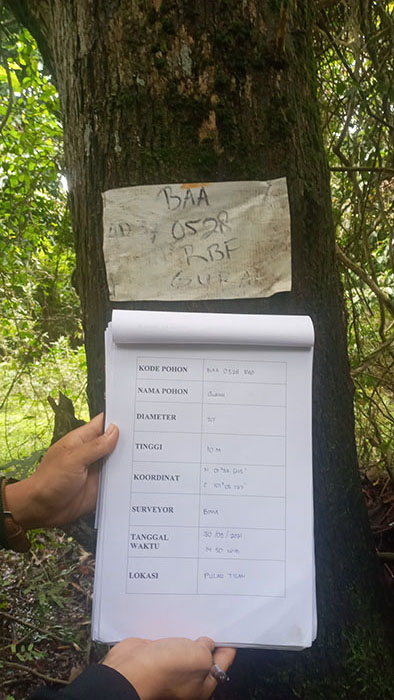 BAA
052R
RBF
GURAH
KODE POHON BAA 052R RBF
NAMA POHON GURAH
DIAMETER
TINGGI 10 M
KOORDINAT
SURVEYOR BIMA
TANGGAL
WAKTU 14 30 WIB
LOKASI PULAU TIGA